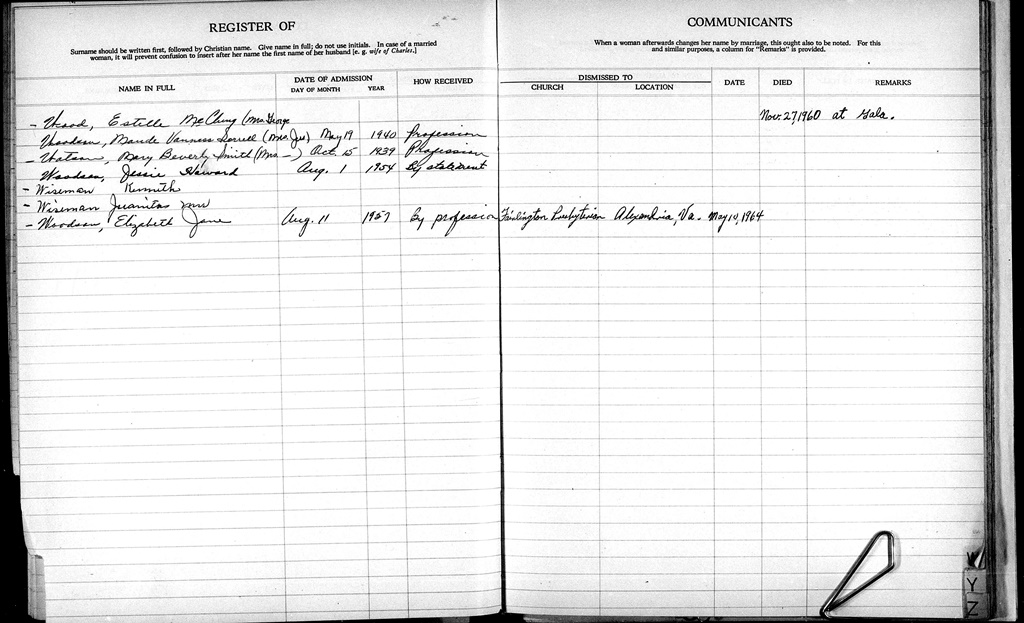 REGISTER OF
Surname should be written first, followed by Christian name. Give name in full; do not use initials. In case of a married
woman, it will prevent confusion to insert after her name the first name of her husband [e. g. wife of Charles.]
COMMUNICANTS
When a woman afterwards changes her name by marriage, this ought also to be noted. For this
and similar purposes, a column for "Remarks" is provided.
NAME IN FULL DATE OF ADMISSION HOW RECEIVED DISMISSED TO DATE DIED REMARKS
DAY OF MONTH YEAR CHURCH LOCATION
- Wood, Estelle McClung (Mrs. George Nov. 27, 1960 at Gala.
Woodson, Maude Vanness Sorrell (Mrs. Jas) May 19 1940 Profession
- Watson, Mary Beverly Smith (Mrs —) Oct. 15 1939 Profession
Woodson, Jessie Howard Aug. 1 1954 By statement
- Wiseman Kenneth
- Wiseman Juanita Mrs
- Woodson, Elizabeth Jane Aug. 11 1957 By profession Fairlington Presbyterian Alexandria, Va. May 10, 1964
Y
Z